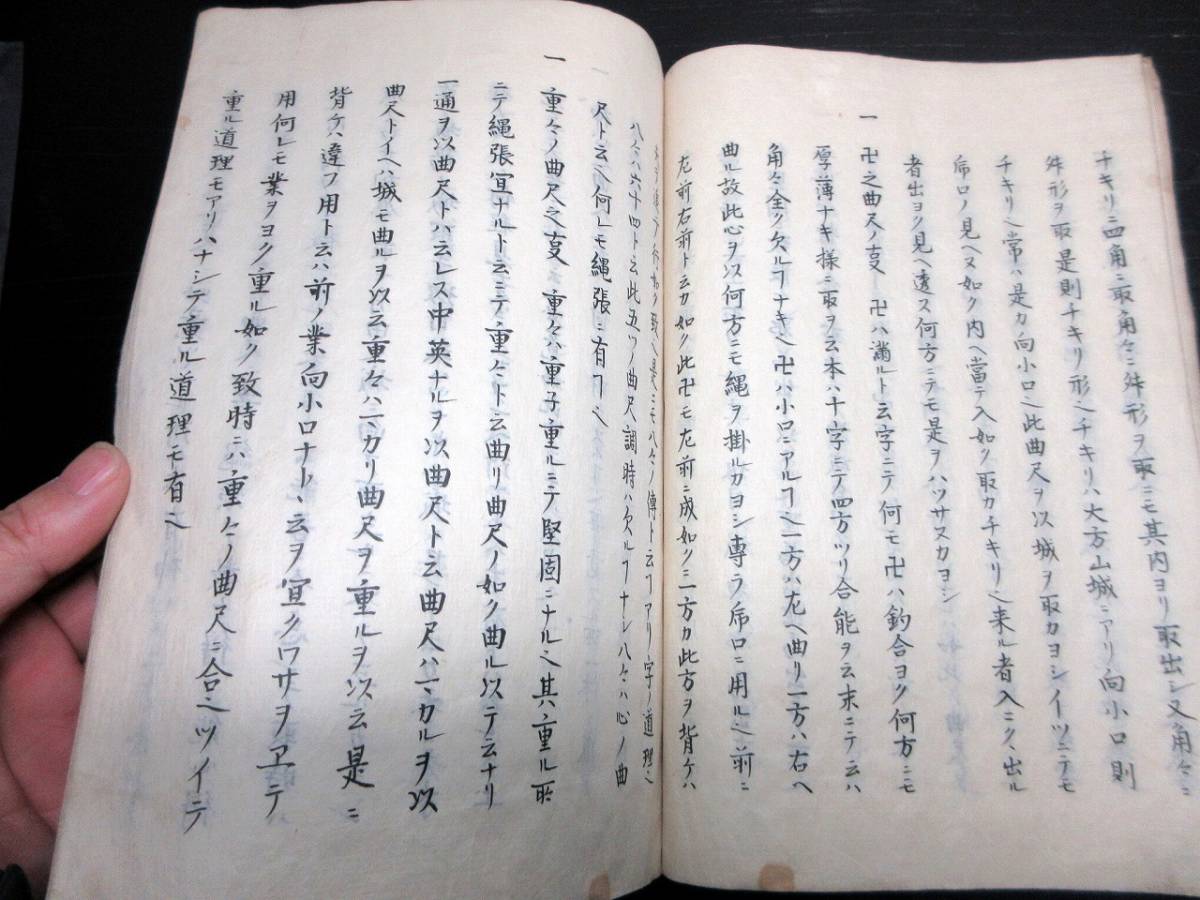 チキリニ四角ニ取角々ニ舛形ヲ取ニモ其内ヨリ取出シ又角々ニ
舛形ヲ取是則チキリ形也チキリハ大方山城ニアリ向小口則
チキリ也常ハ是カ向小口也此曲尺ヲ以城ヲ取カヨシイツニテモ
乕口ノ見ヘヌ如ク内ヘ當テ入如ク取カチキリ也来ル者入ニクヽ出ル
者出ヨク見ヘ透ス何方ニテモ是ヲハツサヌカヨシ
一 卍之曲尺ノ叓 卍ハ満ルト云字ニテ何モ卍ハ釣合ヨク何方ニモ
厚薄ナキ様ニ取ヲ云本ハ十字ニテ四方ツリ合能ヲ云末ニテ云ハ
角々全ク欠ルヿナキ也卍ハ小口ニアルヿ也一方ハ左ヘ曲リ一方ハ右ヘ
曲ル故此心ヲ以何方ニモ縄ヲ掛ルカヨシ専ラ乕口ニ用ル也前ニ
左前右前ト云カ如ク此卍モ左前ニ成如ク三方カ此方ヲ背ケハ
如ク致也是ニモ八々ノ傳ト云ヿアリ字ノ道理也
八々ハ六十四ト云此五ツノ曲尺調時ハ欠ルヿナシ八々ハ心ノ曲
尺ト云也何レモ縄張ニ有ヿ也
一 重々ノ曲尺之叓 重々ハ重子重ルニテ堅固ニナル也其重ル所
ニテ縄張宜ナルト云ニテ重々ト云曲リ曲尺ノ如ク曲ル以テ云ナリ
一通ヲ以曲尺トハ云レス中英ナルヲ以曲尺ト云曲尺ハマカルヲ以
曲尺トイヘハ城モ曲ルヲ以云重々ハマカリ曲尺ヲ重ルヲ以云是ニ
背ケハ違フ用ト云ハ前ノ業向小口ナトヽ云ヲ宜クワサヲヱテ
用何レモ業ヲヨク重ル如ク致時ニハ重々ノ曲尺ニ合也ツイテ
重ル道理モアリハナシテ重ル道理モ有也